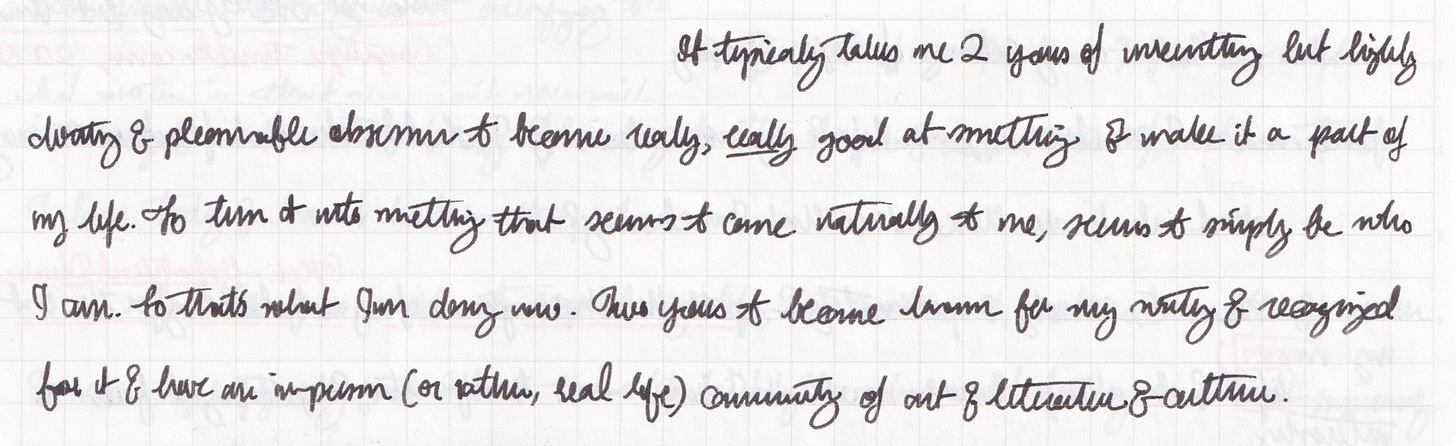 It typically takes me 2 years of unremitting but highly
driving & pleasurable obsession to become really, really good at something & make it a part of
my life. To turn it into something that seems to come naturally to me, seems to simply be who
I am. So that's what I'm doing now. Two years to become known for my writing & recognized
for it & have an in-person (or rather, real life) community of art & literature & culture.